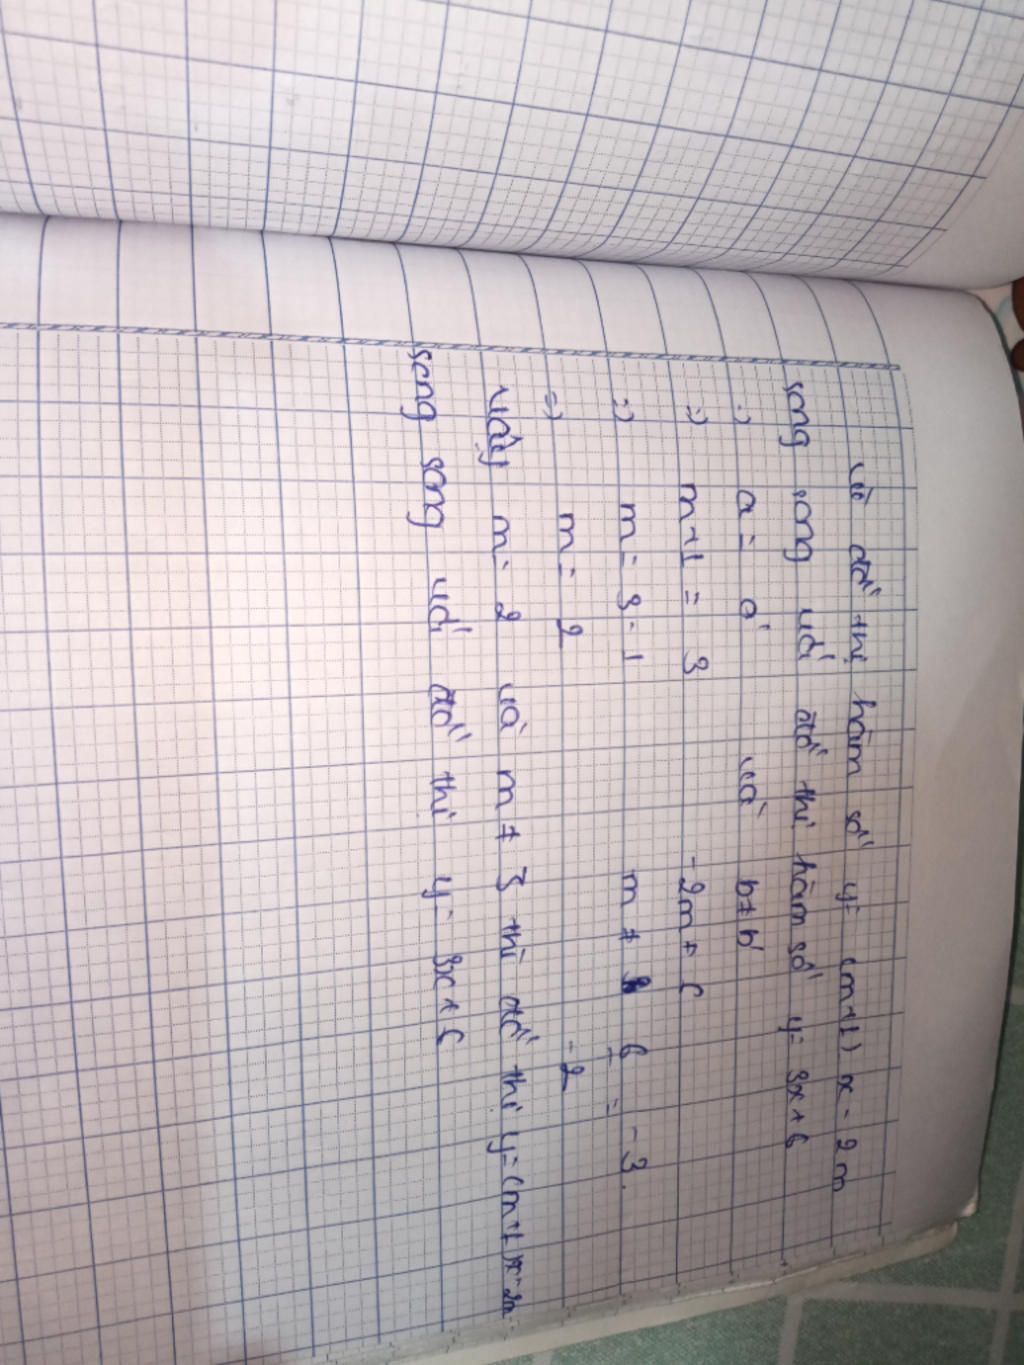 Vì đồ thị hàm số y = (m+1) x - 2m
song song với đồ thị hàm số y = 3x + 6
=) a = a' và b ≠ b'
=) m+1 = 3 -2m ≠ 6
=) m = 3-1 m ≠ 6/-2 = -3.
=) m = 2
Vậy m = 2 và m ≠ 3 thì đồ thị y = (m+1)x - 2m
song song với đồ thị y = 3x + 6